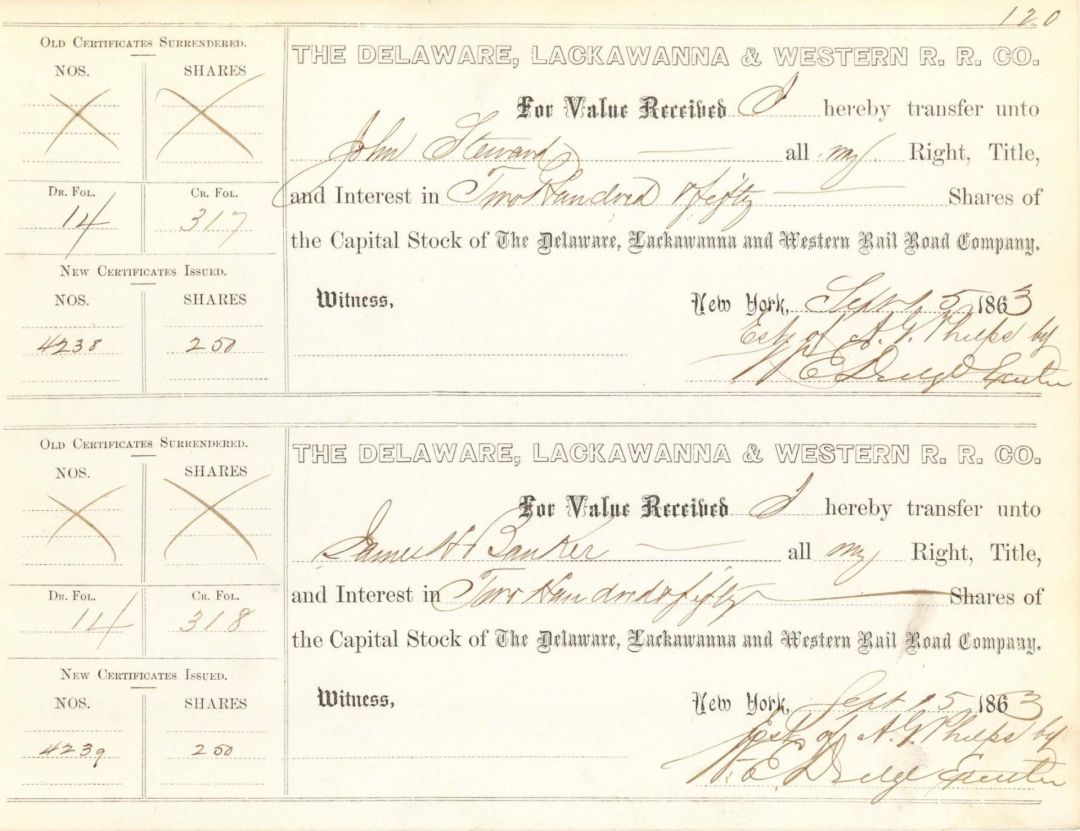 120
OLD CERTIFICATES SURRENDERED.
NOS. SHARES
DR. FOL. CR. FOL.
14 317
NEW CERTIFICATES ISSUED.
NOS. SHARES
4238 250
THE DELAWARE, LACKAWANNA & WESTERN R. R. CO.
For Value Received I hereby transfer unto
John Steward all my Right, Title,
and Interest in Two Hundred & fifty Shares of
the Capital Stock of The Delaware, Lackawanna and Western Rail Road Company.
Witness, New York, Sept 15 1863
Est. of A. G. Phelps by
W. E. Dodge Executor
OLD CERTIFICATES SURRENDERED.
NOS. SHARES
DR. FOL. CR. FOL.
14 318
NEW CERTIFICATES ISSUED.
NOS. SHARES
4239 250
THE DELAWARE, LACKAWANNA & WESTERN R. R. CO.
For Value Received I hereby transfer unto
James H Banker all my Right, Title,
and Interest in Two Hundred & fifty Shares of
the Capital Stock of The Delaware, Lackawanna and Western Rail Road Company.
Witness, New York, Sept 15 1863
Est. of A. G. Phelps by
W. E. Dodge Executor